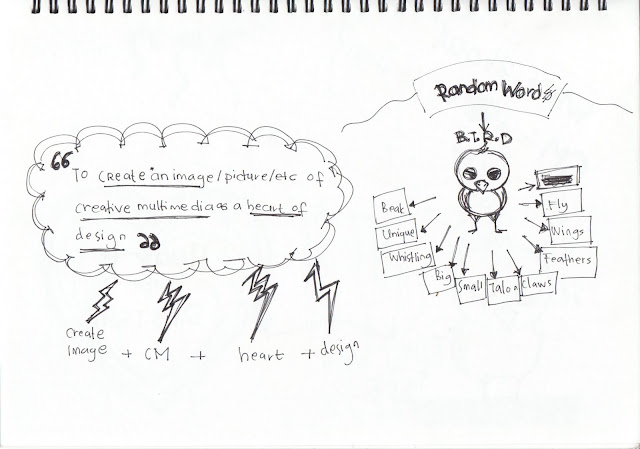 “ To create an image/picture/etc of
creative multimedia as a heart of
design ”
Create
Image + CM + heart + design
Random Words
B.I.R.D
Beak
Unique
Whistling
Big
Small
Talon
Claws
Feathers
Wings
Fly